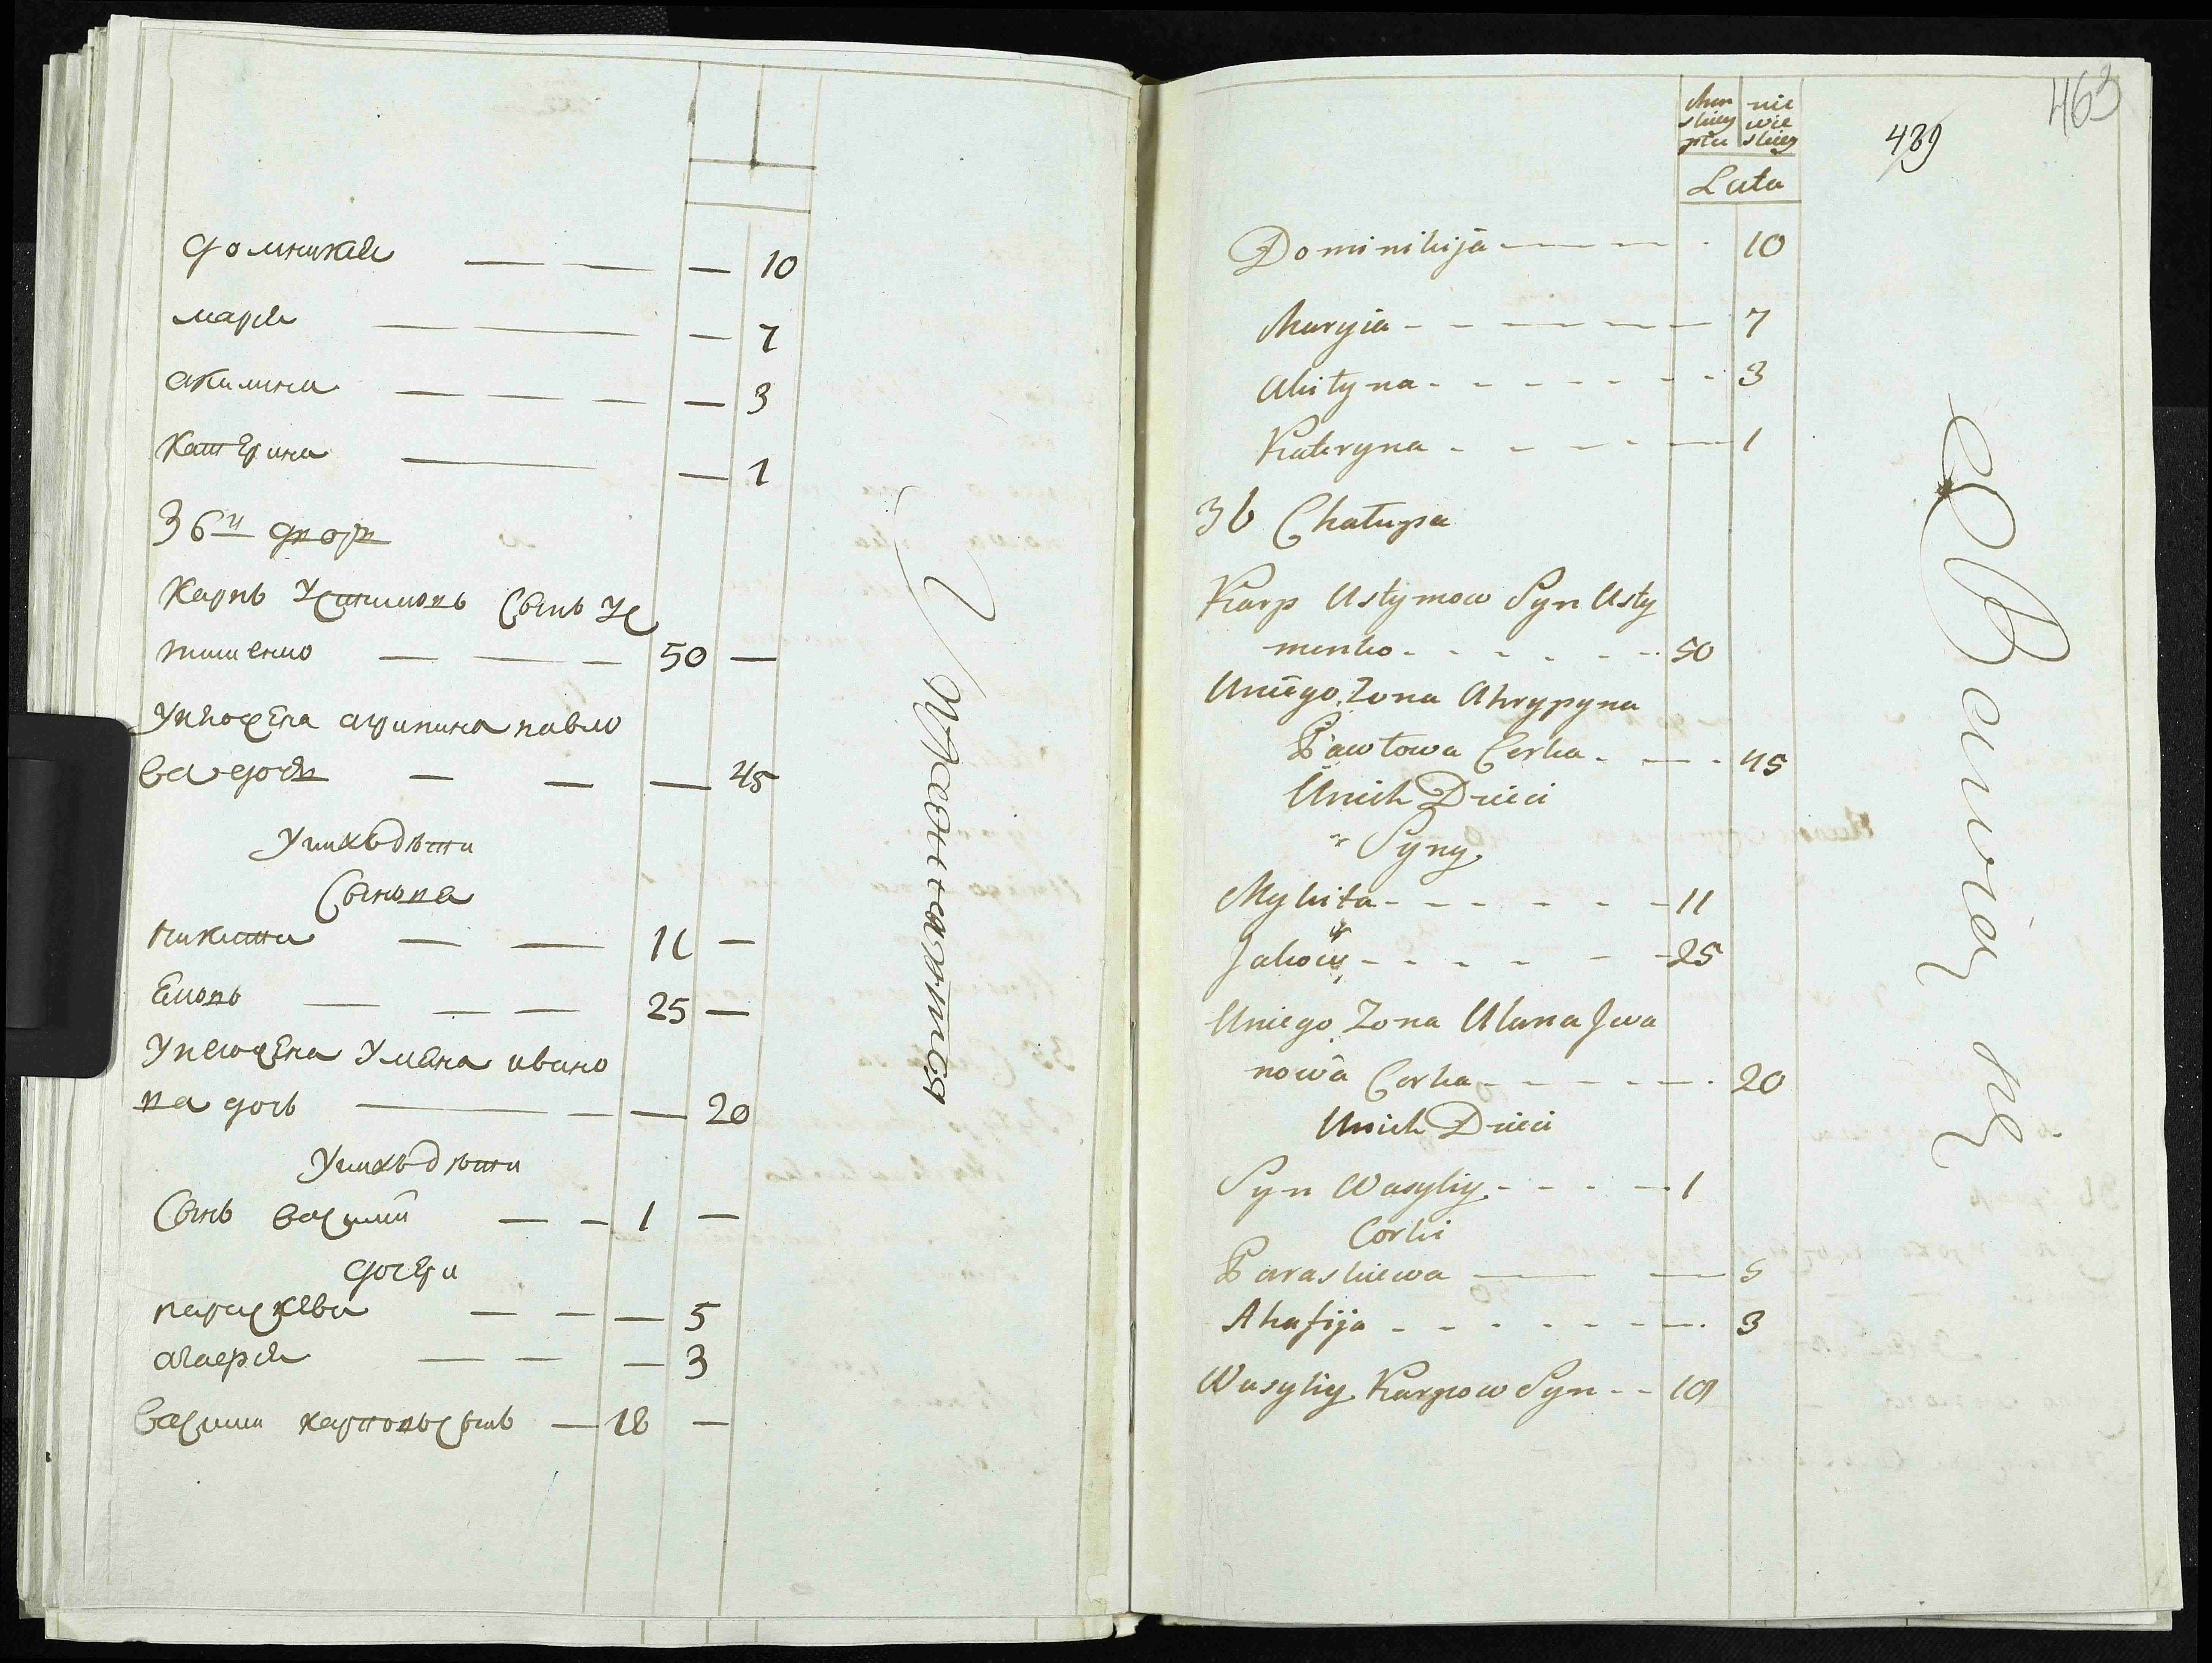 домникия — — — 10
мария — — — 7
акилина — — — — 3
Катерина — — 1
36й двор
Карпъ Устимовъ Сынъ Ус
тименко — — — 50 —
Унего жена агрипина павло
ва дочь — — — 45
Унихъ дѣти
Сынове
никита — — 11 —
Яковъ — — — 25 —
Унего жена Уляна ивано
ва дочь — — — 20
Унихъ дѣти
Сынъ василий — — 1 —
дочери
параскева — — — 5
агафия — — — 3
василий карповъ сынъ — 18 —
Mę
skiey
płci
nie
wie
skiey
Lata
439
463
Dominikija — — — 10
Maryia - - - - - 7
Akiłyna - - - - - - - 3
Kateryna - - - - - 1
36 Chałupa
Karp Ustymow Syn Usty
menko - - - - - - 50
Uniego Zona Ahrypyna
Pawłowa Corka - - - 45
Unich Dzieci
Syny
Mykita - - - - - - 11
Jakow - - - - - - 25
Uniego Zona Ulana Jwa
nowa Corka - - - - - 20
Unich Dzieci
Syn Wasyliy - - - - 1
Corki
Paraskiewa — — 5
Ahafija - - - - - - - 3
Wasyliy Karpow Syn - - 18